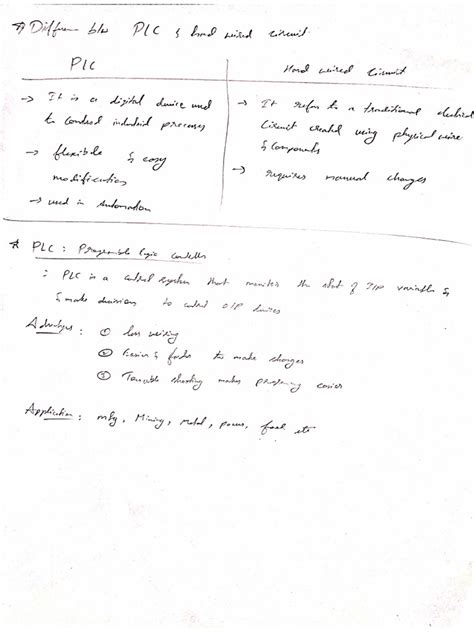 Differen b/w PLC & hard wired circuit
PLC
Hard wired Circuit
→ It is a digital device used
to control industrial processes
→ flexible & easy
modification
→ used in Automation
→ It refers to a traditional electrical
circuit created using physical wire
& components
→ requires manual changes
* PLC : Programable logic controller
: PLC is a control system that monitors the state of I/P variable &
& make decisions to control O/P devices
Advantages : ① less wiring
② Easier & faster to make changes
③ Trouble shooting makes easier
Application : mfg, Mining, metal, power, food etc